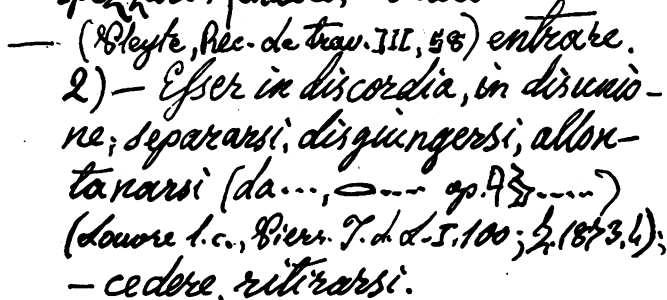 — (Pleyte, Rec. de trav. III, 58) entrare.
2) — Esser in discordia, in disunio-
ne; separarsi, disgiungersi, allon-
tanarsi (da..., ... op. ......)
(Louvre l.c., Pierr. T. d. L. I. 100; Z. 1873, 4);
— cedere, ritirarsi.